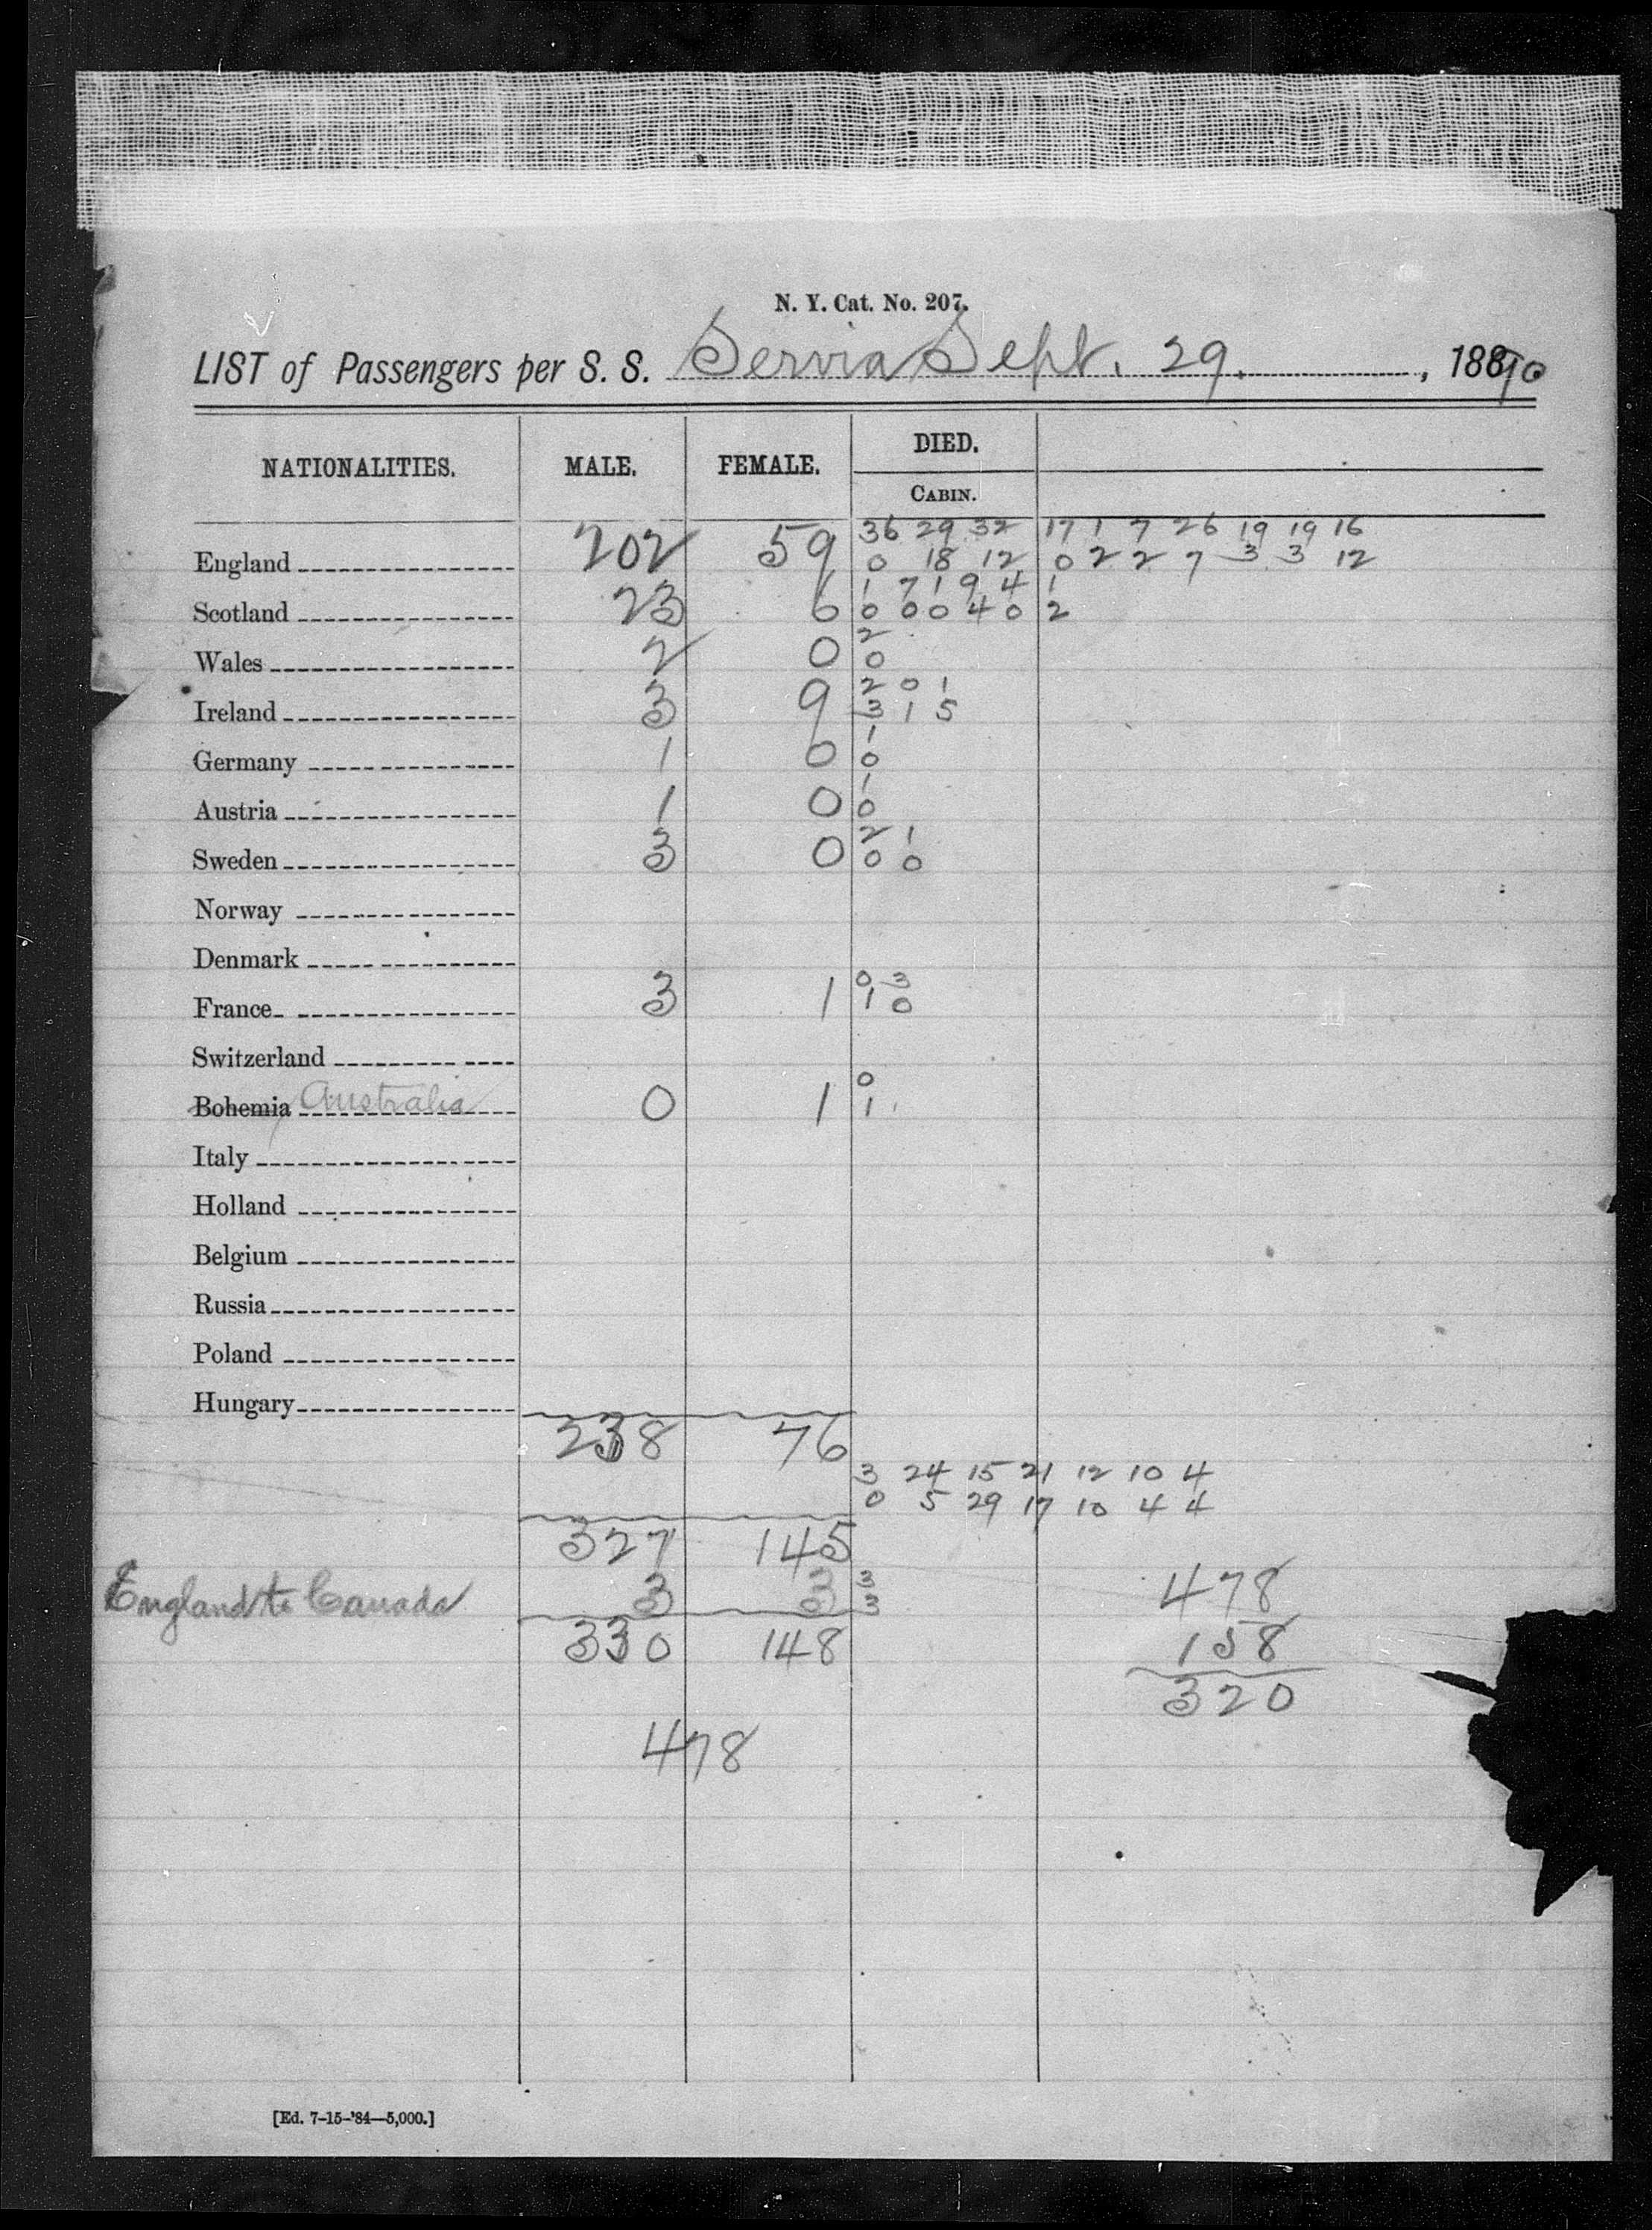 N. Y. Cat. No. 207.
LIST of Passengers per S. S. Servia Sept. 29. , 1890
NATIONALITIES. MALE. FEMALE. DIED.
CABIN.
36 29 32 17 1 7 26 19 19 16
England 202 59 0 18 12 0 2 2 7 3 3 12
1 7 1 9 4 1
Scotland 23 6 0 0 0 4 0 2
2
Wales 2 0 0
2 0 1
Ireland 3 9 3 1 5
1
Germany 1 0 0
1
Austria 1 0 0
2 1
Sweden 3 0 0 0
Norway
Denmark
0 3
France 3 1 1 0
Switzerland
0
Bohemia Australia 0 1 1
Italy
Holland
Belgium
Russia
Poland
Hungary
238 76
3 24 15 21 12 10 4
0 5 29 17 10 4 4
327 145
England to Canada 3 3 3 478
3
330 148 158
320
478
[Ed. 7-15-'84—5,000.]